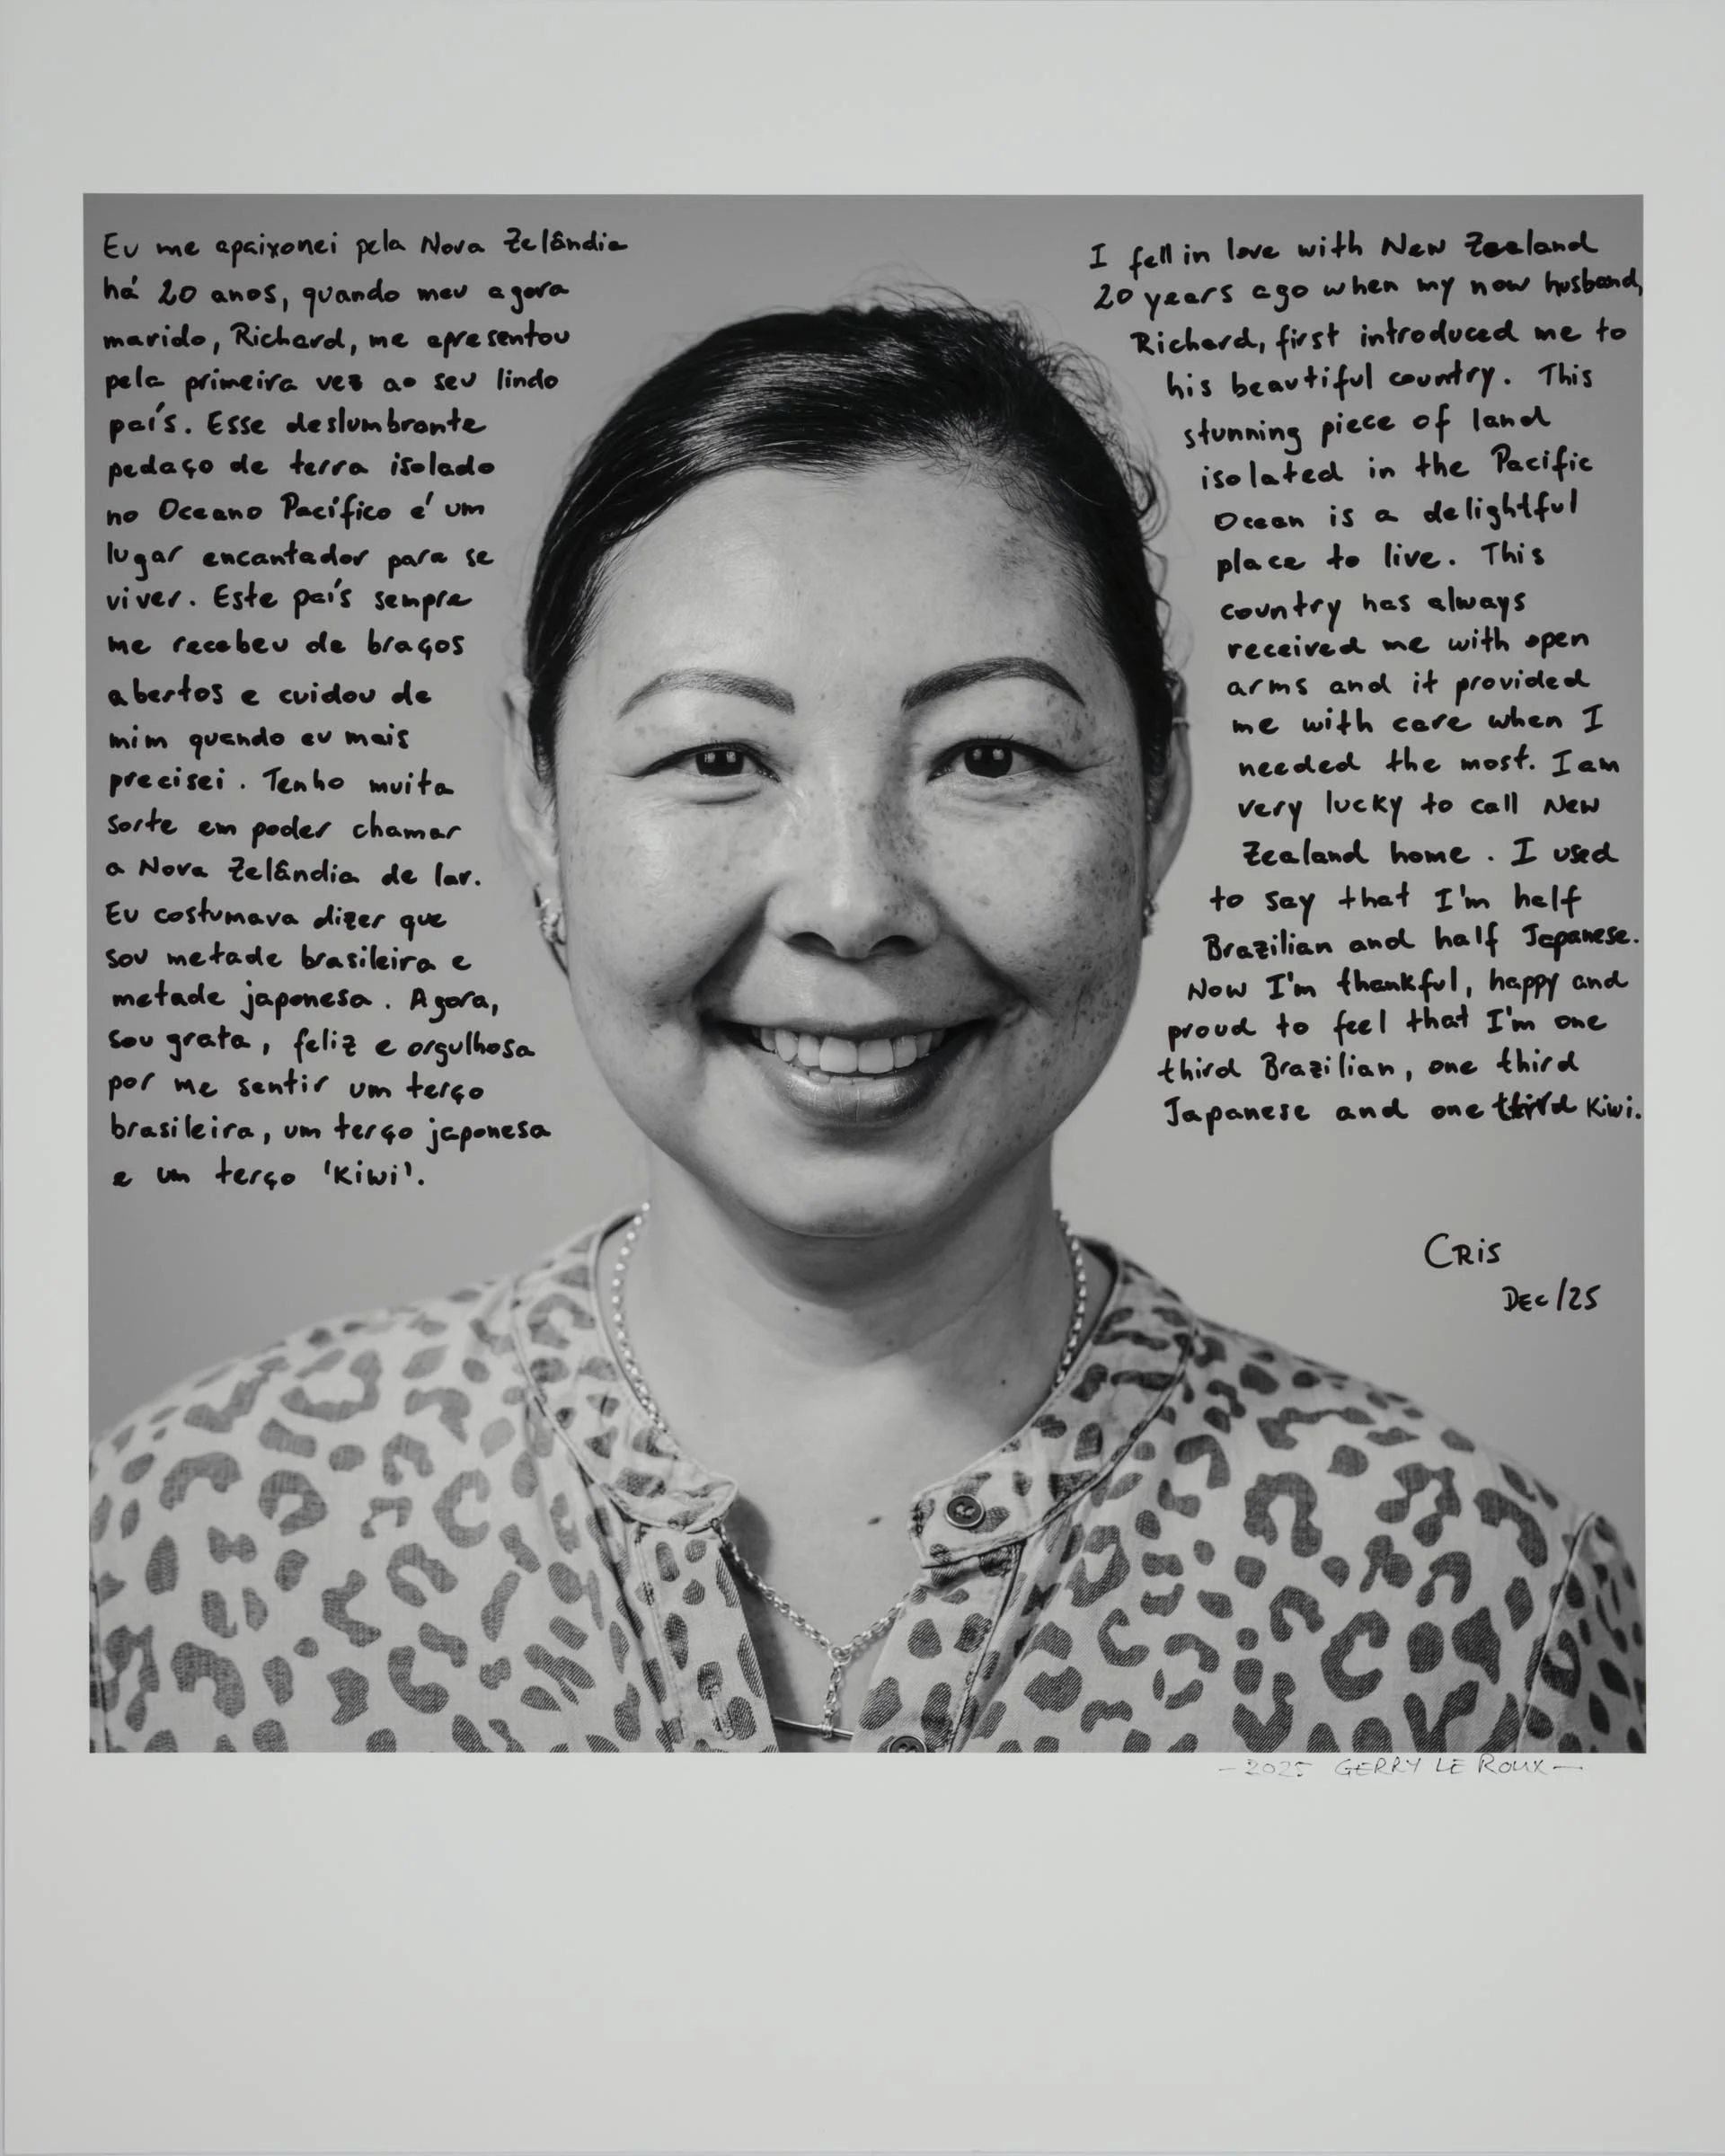 Eu me apaixonei pela Nova Zelândia
há 20 anos, quando meu agora
marido, Richard, me apresentou
pela primeira vez ao seu lindo
país. Esse deslumbrante
pedaço de terra isolado
no Oceano Pacífico é um
lugar encantador para se
viver. Este país sempre
me recebeu de braços
abertos e cuidou de
mim quando eu mais
precisei. Tenho muita
sorte em poder chamar
a Nova Zelândia de lar.
Eu costumava dizer que
sou metade brasileira e
metade japonesa. Agora,
sou grata, feliz e orgulhosa
por me sentir um terço
brasileira, um terço japonesa
e um terço 'Kiwi'.
I fell in love with New Zealand
20 years ago when my now husband,
Richard, first introduced me to
his beautiful country. This
stunning piece of land
isolated in the Pacific
Ocean is a delightful
place to live. This
country has always
received me with open
arms and it provided
me with care when I
needed the most. I am
very lucky to call New
Zealand home. I used
to say that I'm half
Brazilian and half Japanese.
Now I'm thankful, happy and
proud to feel that I'm one
third Brazilian, one third
Japanese and one third Kiwi.
Cris
Dec/25
- 2025 GERRY LE ROUX -